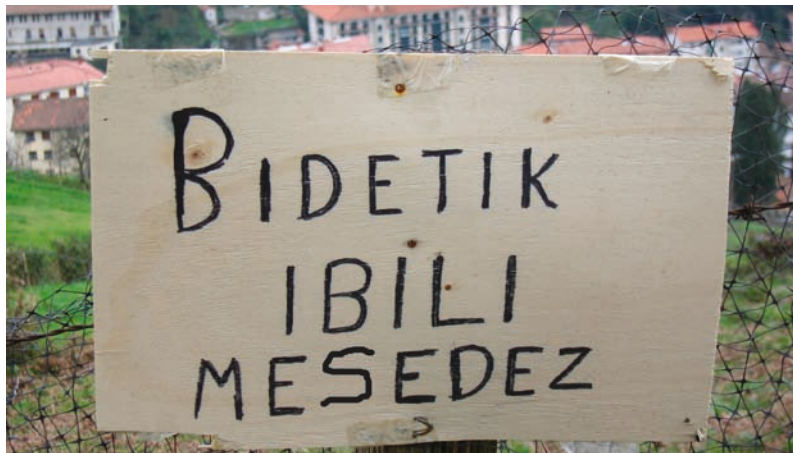 BIDETIK
IBILI
MESEDEZ